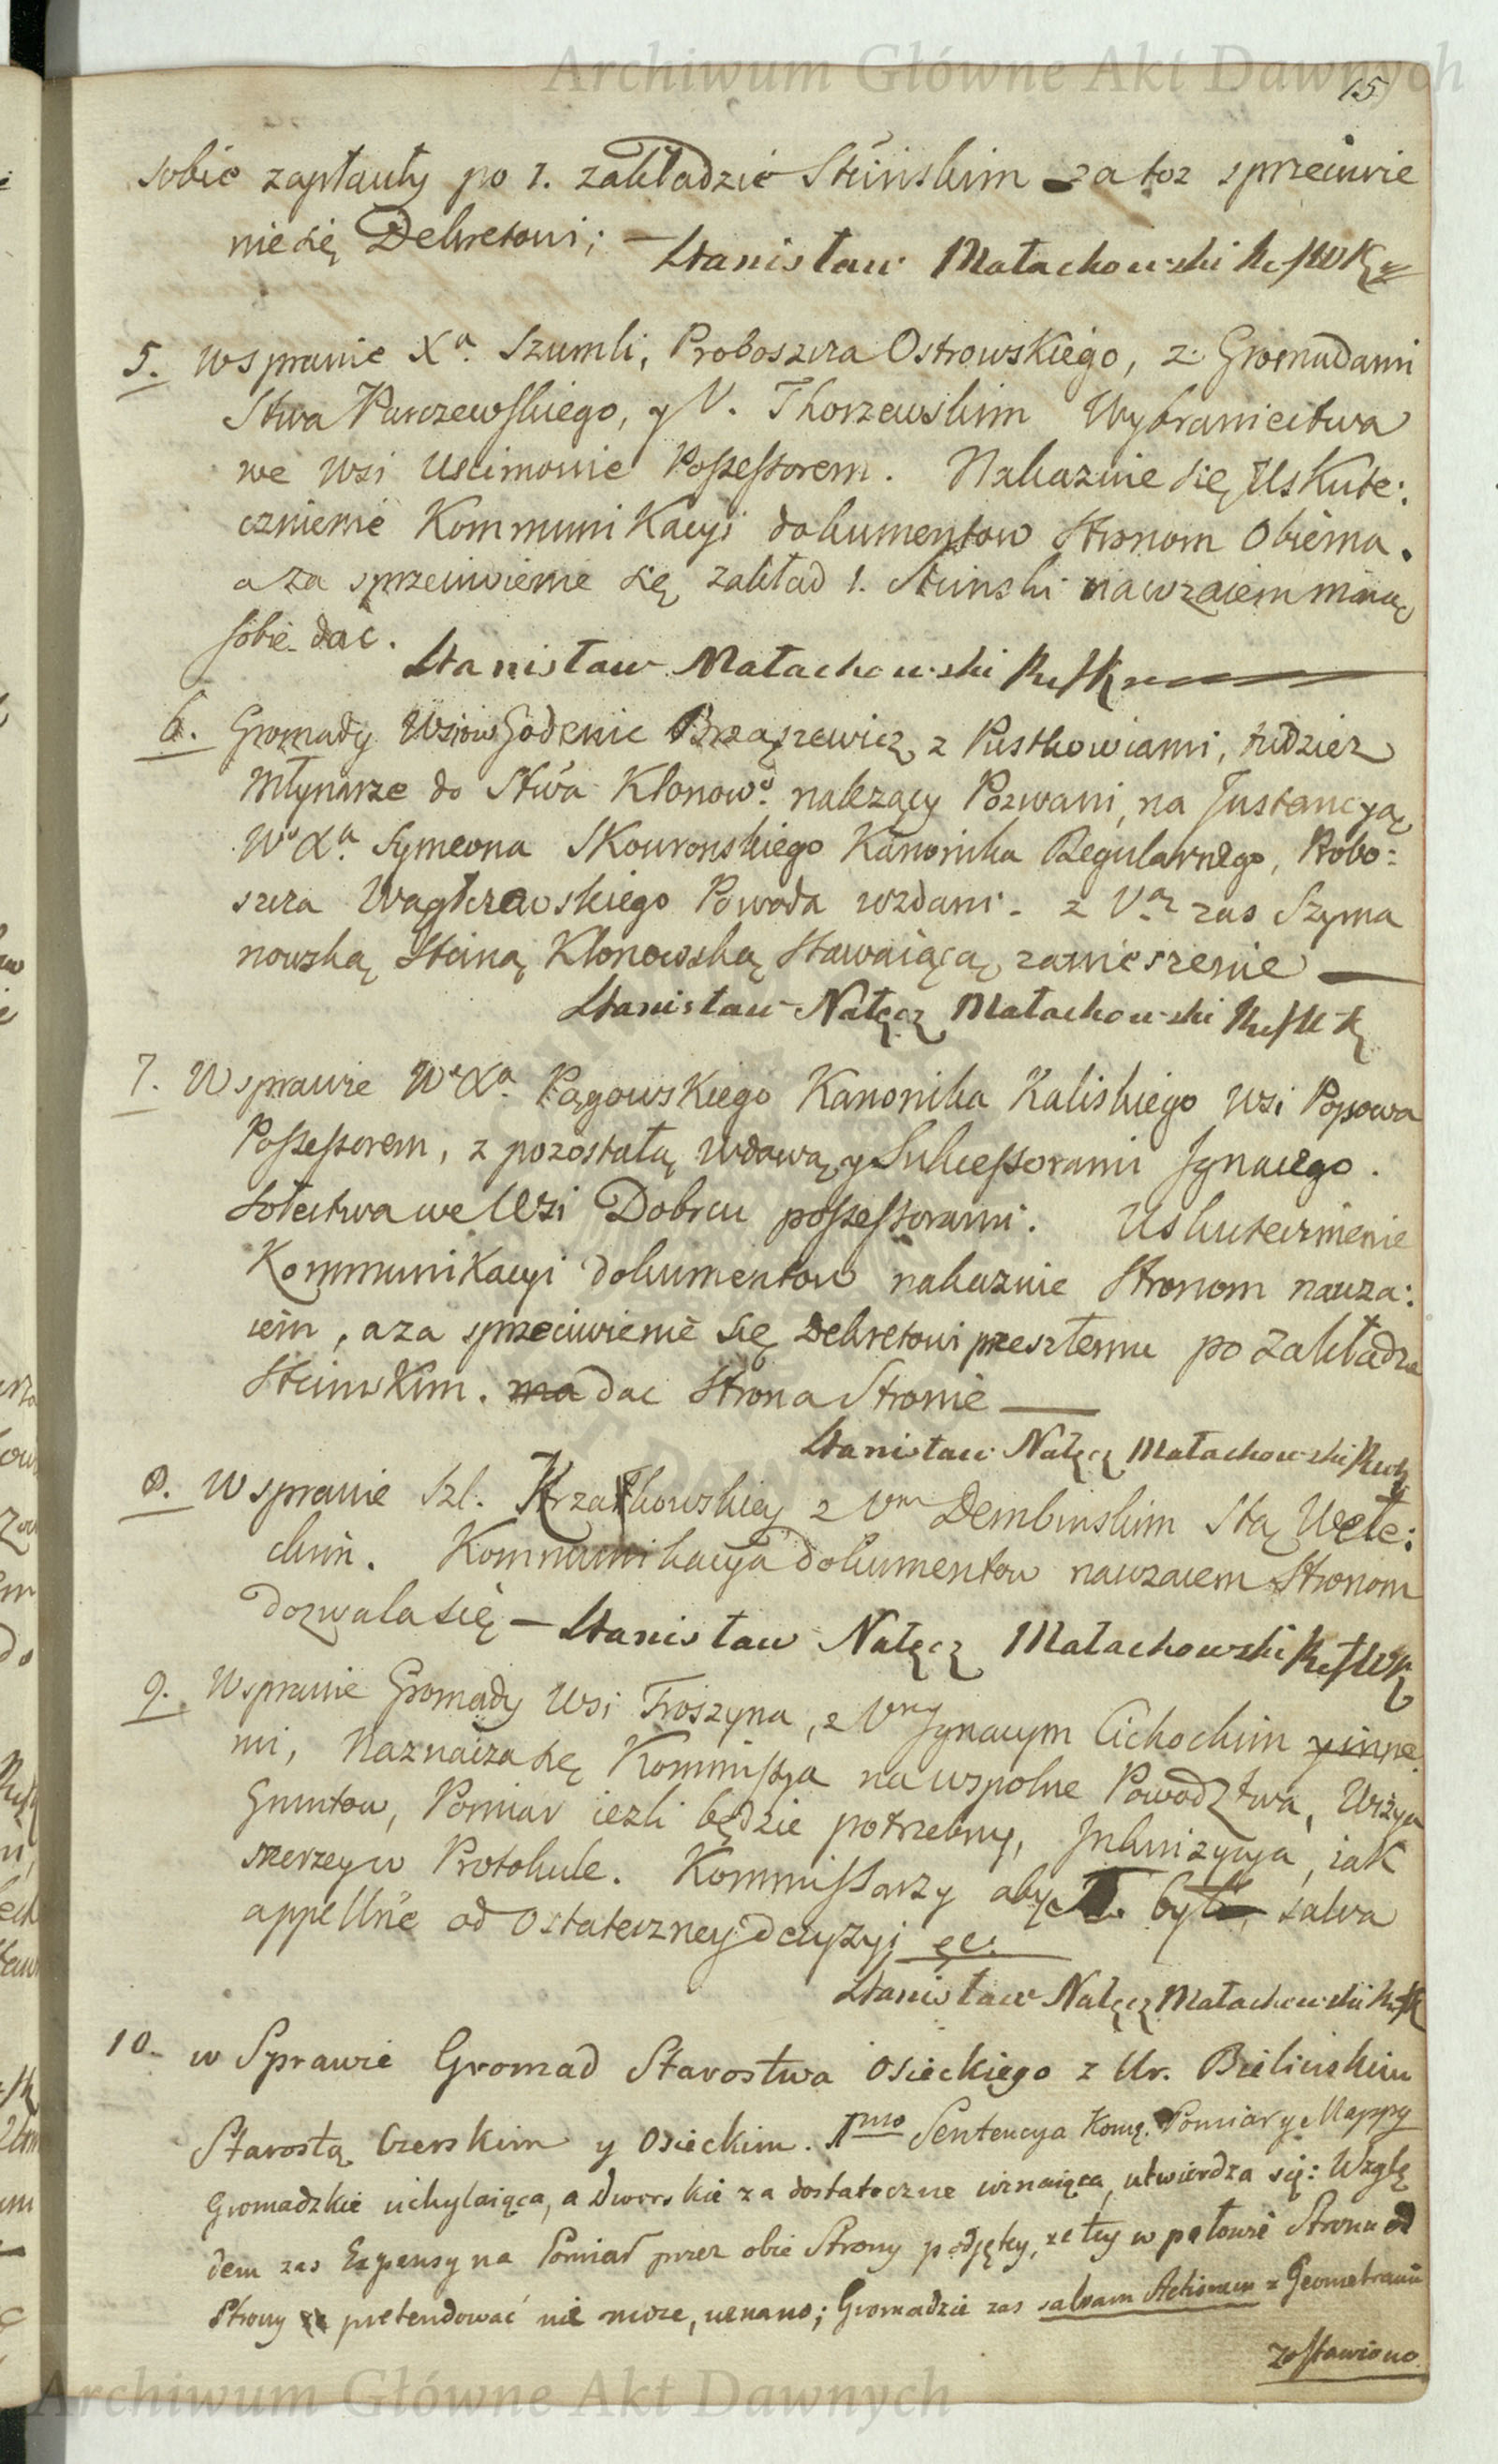 Archiwum Główne Akt Dawnych
15
sobie zapłaciły po 1. zakładzie Stcińskim za toz sprzeciwie
nie się Dekretowi; — Stanisław Małachowski RefWK
5. W sprawie Xa. Szumli, Proboszcza Ostrowskiego, z Gromadami
Stwa Parczewskiego, y V. Thorzewskim Wybraniectwa
we wsi Uscimowie Possessorem. Nakazuie się Uskute:
cznienie Kommunikacyi dokumentow Stronom Obiema.
a za sprzeciwienie się zakład 1. Stcinski nawzaiem maią
sobie dać. Stanisław Małachowski Ref
6. Gromady Wsiow Godynic Brząszewicz z Pustkowiami, tudziez
Młynarze do Stwa Klonowo. nalezący Pozwani, na Instancyą
Wo Xa. Symeona Skowronskiego Kanonika Regularnego, Probo:
szcza Wągłczewskiego Powoda wzdani. z V. zas Szyma
nowską Stciną Klonowską Stawaiącą zawieszenie —
Stanisław Nałęcz Małachowski RefWK
7. W sprawie Wo Xa. Pągowskiego Kanonika Kaliskiego wsi Popowa
Possessorem, z pozostałą wdową y Sukcessorami Jgnacego.
Sołectwa we Wsi Dobrcu possessorami. Uskutecznienie
Kommunikacyi dokumentow nakazuie Stronom nawza:
iem, a za sprzeciwienie się Dekretowi przeszłemu po zakładzie
Stcinskim. ma dac Strona Stronie —
Stanisław Nałęcz Małachowski
8. W sprawie Szl. Krzatkowskiey z Vm Dembinskim Stą Wełe:
ckim. Kommunikacya dokumentow nawzaiem Stronom
dozwala się — Stanisław Nałęcz Małachowski RefWK
9. W sprawie Gromady Wsi Troszyna, z Vm Jgnacym Cichockim y inne
mi, Naznacza się Kommissya na wspolne Powodztwa, Wizya
Gruntow, Pomiar iezli będzie potrzebny, Jnkwizycya, iak
szerzey w Protokule. Kommissarzy aby byli salva
appellne od ostateczney decyzyi ec.
Stanisław Nałęcz Małachowski
10. w Sprawie Gromad Starostwa Osieckiego z Ur. Bielinskim
Starostą Czerskim y Osieckim. 1mo Sentencya Komę. Pomiary Mappy
Gromadzkie uchylaiąca, a Dworskie za dostateczne uznaiąca, utwierdza się: Wzglę
dem zas Expensy na Pomiar przez obie Strony podjętey, ze tey w połowie Strona od
Strony pretendować nie moze, uznano; Gromadzie zas salvam Actionem z Geometrami
zostawiono
Archiwum Główne Akt Dawnych